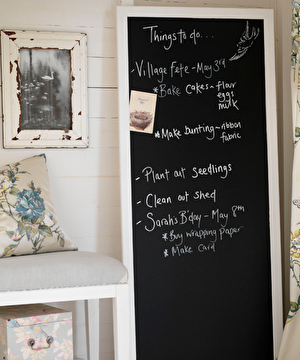 Things to do...
- Village Fete - May 3rd
* Bake cakes - flour
eggs
milk
* Make bunting - ribbon
fabric
- Plant out Seedlings
- Clean out shed
- Sarah's B'day - May 8th
* Buy wrapping paper
* Make Card